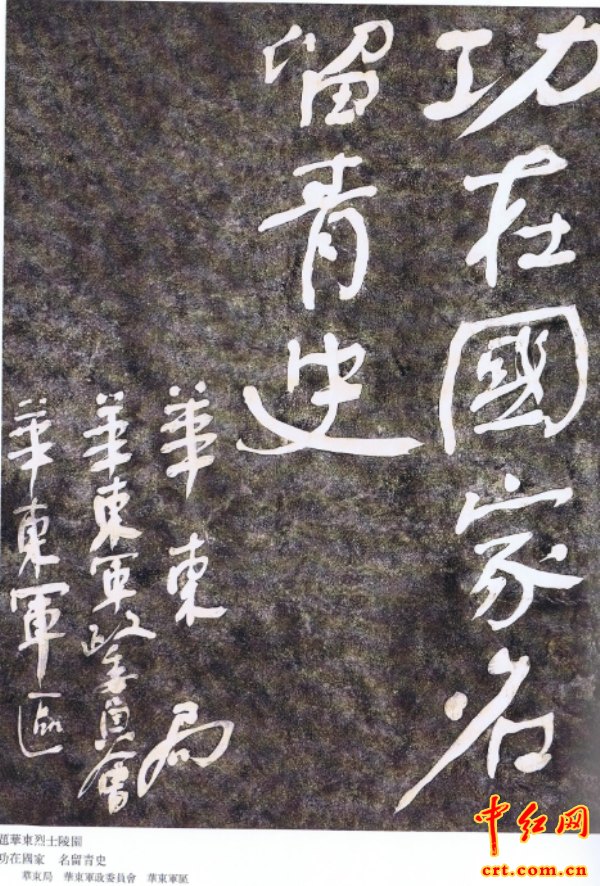 功在國家名
留青史
華東局
華東軍政委員會
華東軍區
題華東烈士陵園
功在國家 名留青史
華東局 華東軍政委員會 華東軍區
中红网
crt.com.cn